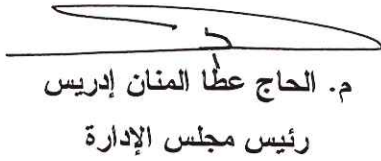 م. الحاج عطا المنان إدريس
رئيس مجلس الإدارة